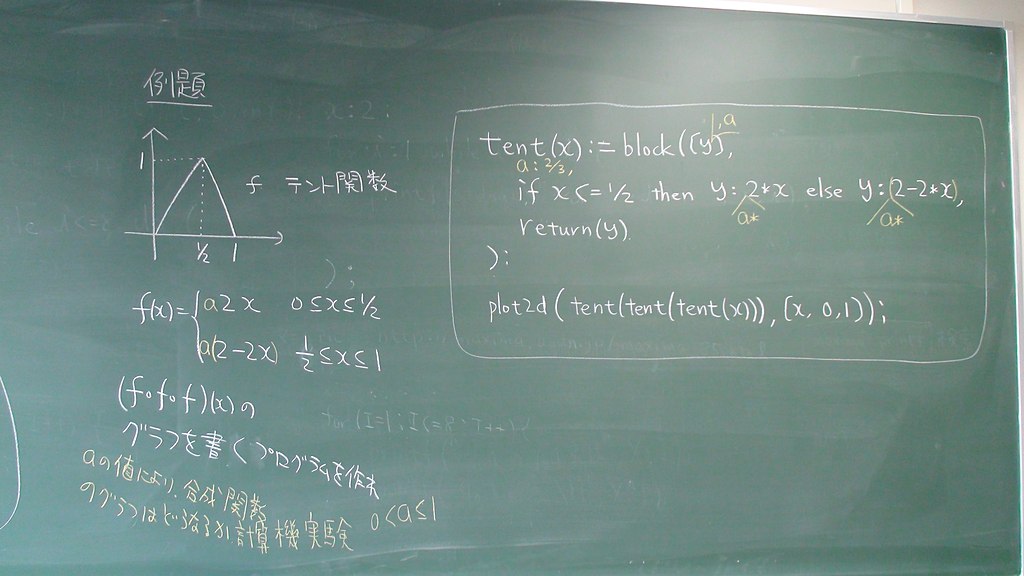 例題
1
1/2 1
f テント関数
f(x)= { a2x 0≤x≤1/2
a(2-2x) 1/2≤x≤1
(f∘f∘f)(x)の
グラフを書くプログラムを作れ
aの値により、合成関数
のグラフはどうなるか計算機実験 0<a≤1
tent(x):=block([y],
,a
a:2/3,
if x<=1/2 then y:2*x else y:(2-2*x),
a* a*
return(y)
);
plot2d(tent(tent(tent(x))),[x,0,1]);
x:2;
);
for(I=1;I<=8;I++){